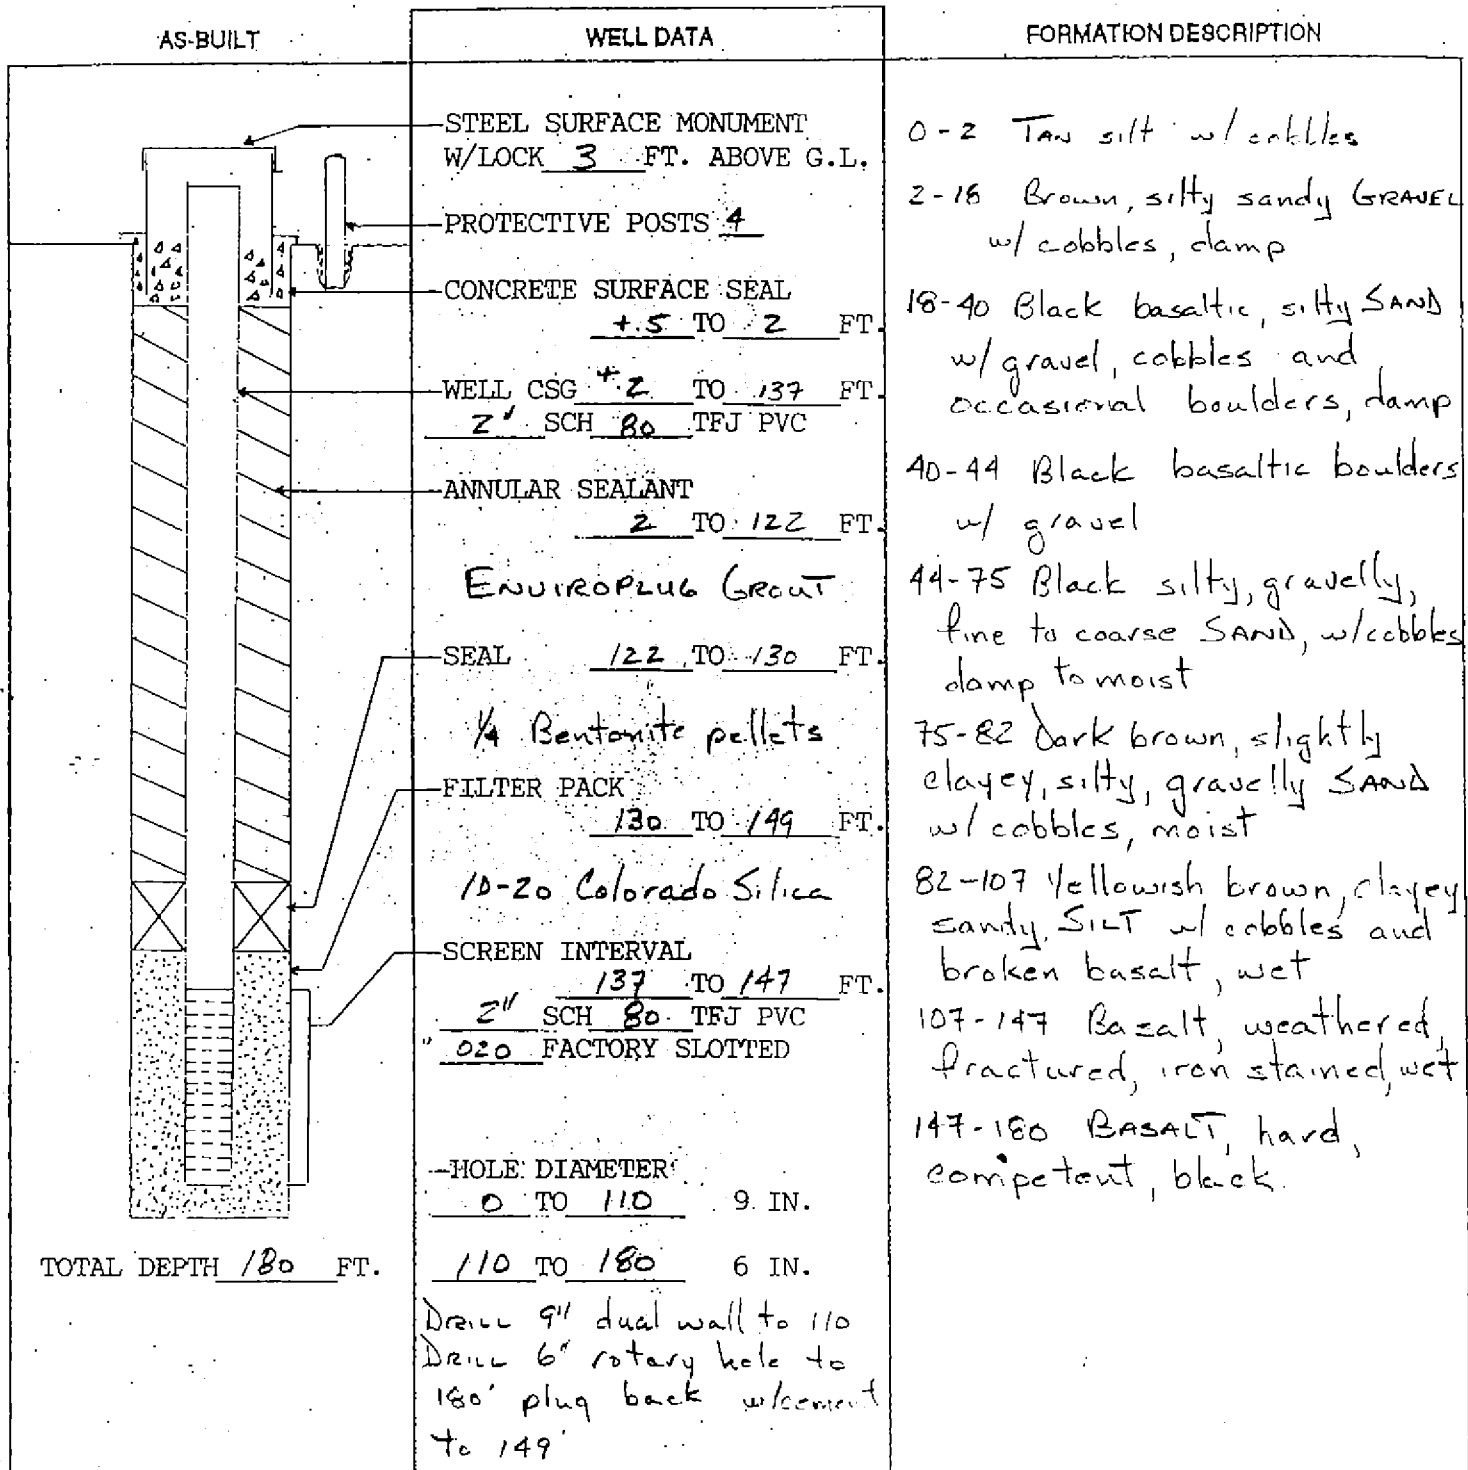 AS-BUILT
TOTAL DEPTH 180 FT.
WELL DATA
STEEL SURFACE MONUMENT
W/LOCK 3 FT. ABOVE G.L.
PROTECTIVE POSTS 4
CONCRETE SURFACE SEAL
+.5 TO 2 FT.
WELL CSG +2 TO 137 FT.
2" SCH 80 TFJ PVC
ANNULAR SEALANT
2 TO 122 FT.
ENVIROPLUG GROUT
SEAL 122 TO 130 FT.
1/4 Bentonite pellets
FILTER PACK
130 TO 149 FT.
10-20 Colorado Silica
SCREEN INTERVAL
137 TO 147 FT.
2" SCH 80 TFJ PVC
020 FACTORY SLOTTED
HOLE DIAMETER
0 TO 110 9 IN.
110 TO 180 6 IN.
DRILL 9" dual wall to 110
DRILL 6" rotary hole to
180' plug back w/cement
to 149'
FORMATION DESCRIPTION
0-2 TAN silt w/ cobbles
2-18 Brown, silty sandy GRAVEL
w/ cobbles, damp
18-40 Black basaltic, silty SAND
w/ gravel, cobbles and
occasional boulders, damp
40-44 Black basaltic boulders
w/ gravel
44-75 Black silty, gravelly,
fine to coarse SAND, w/cobbles
damp to moist
75-82 Dark brown, slightly
clayey, silty, gravelly SAND
w/ cobbles, moist
82-107 Yellowish brown, clayey
sandy, SILT w/ cobbles and
broken basalt, wet
107-147 Basalt, weathered,
fractured, iron stained, wet
147-180 BASALT, hard,
competent, black.